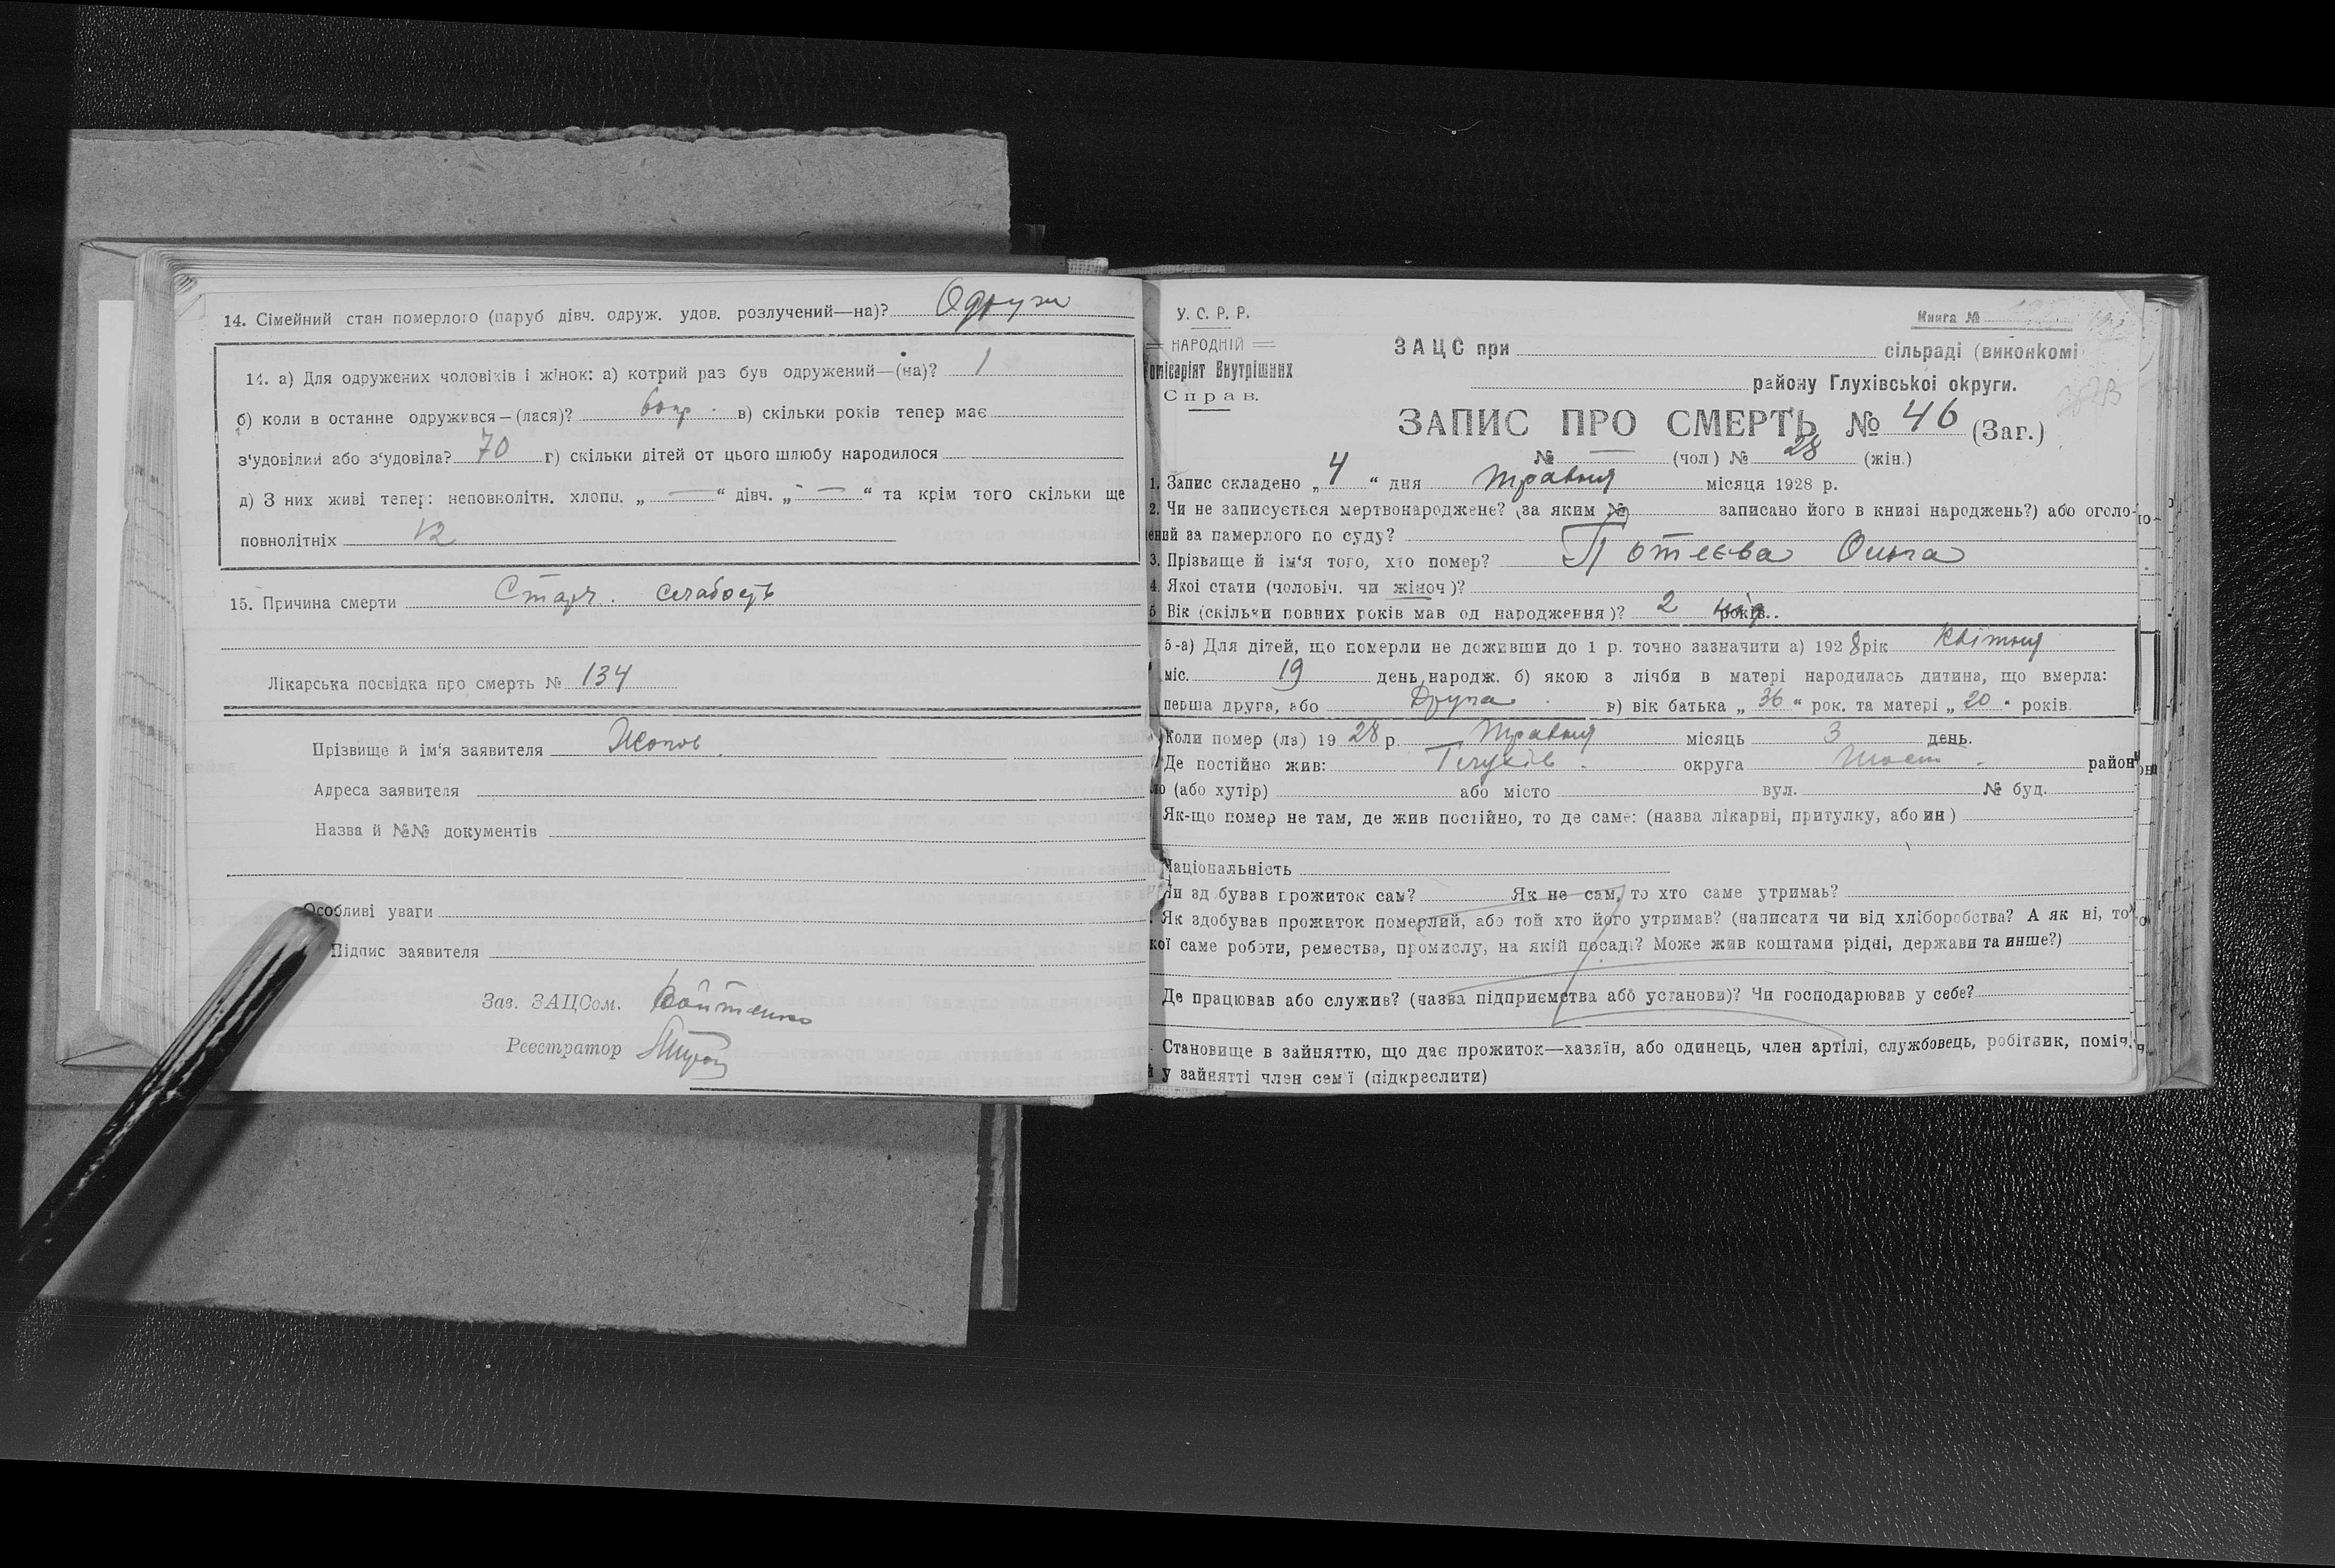 14. Сімейний стан померлого (паруб дівч. одруж. удов. розлучений—на)? Одруж
14. а) Для одружених чоловіків і жінок: а) котрий раз був одружений—(на)? 1
б) коли в останне одружився—(лася)? в) скільки років тепер має
з'удовілий або з'удовіла? 70 г) скільки дітей от цього шлюбу народилося
д) З них живі тепер: неповнолітн. хлопц. „ — “ дівч. „ — “ та крім того скільки ще
повнолітніх
15. Причина смерти Стар. слабость
Лікарська посвідка про смерть № 134
Прізвище й ім'я заявителя
Адреса заявителя
Назва й №№ документів
Особливі уваги
Підпис заявителя
Зав. ЗАЦСом. Войтенко
Реєстратор
У. С. Р. Р.
НАРОДНІЙ
Комісаріят Внутрішних
Справ.
Книга №
ЗАЦС при сільраді (виконкомі
району Глухівської округи.
ЗАПИС ПРО СМЕРТЬ № 46 (Заг.)
№ — (чол) № 28 (жін.)
1. Запис складено „ 4 “ дня травня місяця 1928 р.
2. Чи не записується мертвонароджене? (за яким № записано його в книзі народжень?) або оголо-
ений за памерлого по суду?
3. Прізвище й ім'я того, хто помер? Потеєва Ольга
4. Якої стати (чоловіч. чи жіноч)?
5 Вік (скільки повних років мав од народження)? 2 років..
5-а) Для дітей, що померли не доживши до 1 р. точно зазначити а) 1928 рік Квітня
міс. 19 день народж. б) якою з лічби в матері народилась дитина, що вмерла:
перша друга, або Друга в) вік батька „ 36 “ рок. та матері „ 20 “ років.
Коли помер (ла) 19 28 р. Травня місяць 3 день.
Де постійно жив: Глухів округа Шост район
ло (або хутір) або місто вул. № буд.
Як-що помер не там, де жив постійно, то де саме: (назва лікарні, притулку, або ин)
Національність
Чи здобував прожиток сам? Як не сам, то хто саме утримає?
Як здобував прожиток померлий, або той хто його утримав? (написати чи від хліборобства? А як ні, то
кої саме роботи, ремества, промислу, на якій посаді? Може жив коштами рідні, держави та инше?)
Де працював або служив? (назва підприємства або установи)? Чи господарював у себе?
Становище в зайняттю, що дає прожиток—хазяїн, або одинець, член артілі, службовець, робітник, поміч.
й у зайнятті член сем'ї (підкреслити)